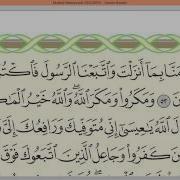 مَنَّا بِمَآ أَنزَلْتَ وَٱتَّبَعْنَا ٱلرَّسُولَ فَٱكْتُبْ
٥٣ وَمَكَرُوا۟ وَمَكَرَ ٱللَّهُ ۖ وَٱللَّهُ خَيْرُ ٱلْمَـٰكِ
لَ ٱللَّهُ يَـٰعِيسَىٰٓ إِنِّى مُتَوَفِّيكَ وَرَافِعُكَ إِلَىَّ
ينَ كَفَرُوا۟ وَجَاعِلُ ٱلَّذِينَ ٱتَّبَعُوكَ فَوْقَ